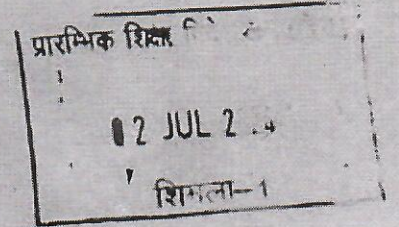 प्रारम्भिक शिक्षा
02 JUL
शिमला-1